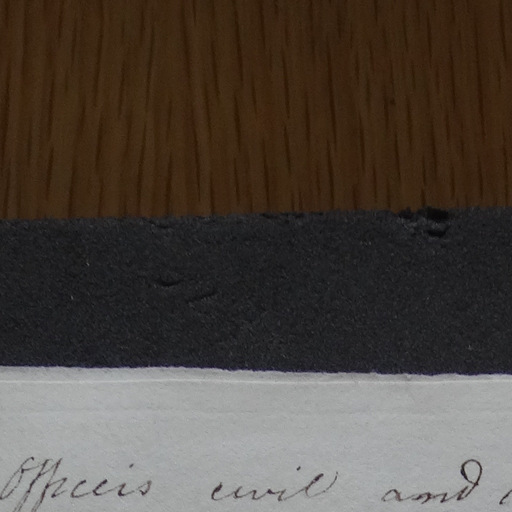 Officers civil and